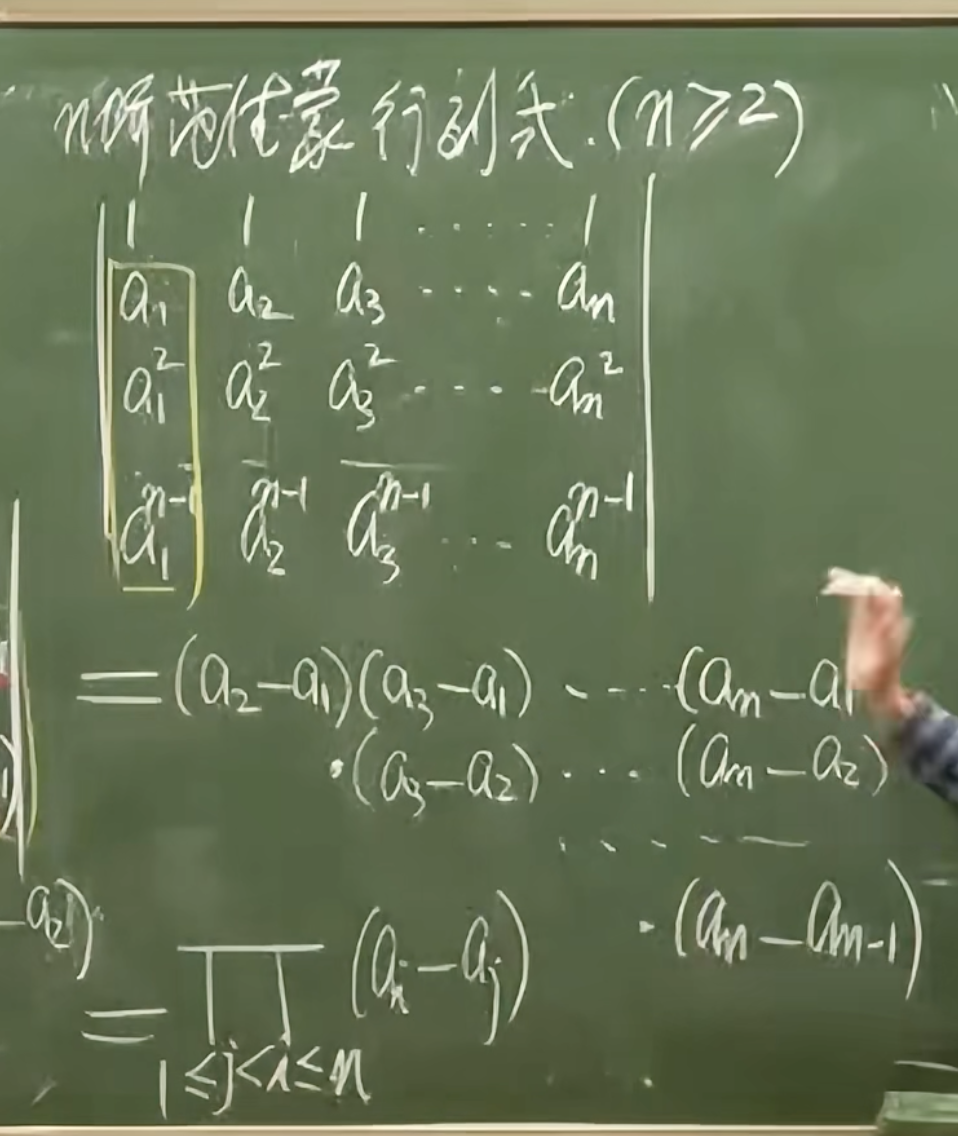 n阶范德蒙行列式.(n≥2)
1 1 1 ······ 1
a₁ a₂ a₃ ····· aₙ
a₁² a₂² a₃² ···· aₙ²
a₁ⁿ⁻¹ a₂ⁿ⁻¹ a₃ⁿ⁻¹ ···· aₙⁿ⁻¹
=(a₂-a₁)(a₃-a₁) ····(aₙ-a₁
·(a₃-a₂) ··· (aₙ-a₂)
·(aₙ-aₙ₋₁)
-a₂)
= ∏ (aᵢ-aⱼ)
1≤j<i≤n